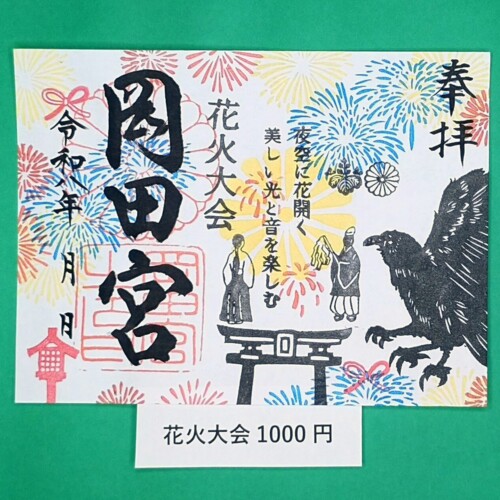 奉拝
夜空に花開く
美しい光と音を楽しむ
花火大会
岡田宮
令和八年 月 日
花火大会1000円